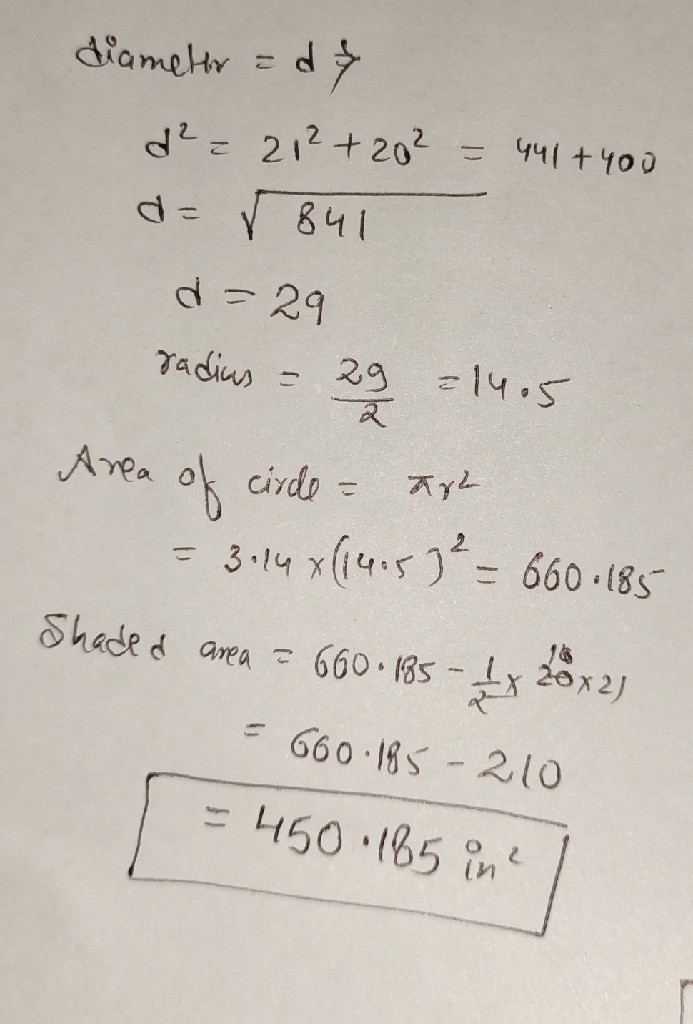 diameter = d ⇒
d² = 21² + 20² = 441 + 400
d = √841
d = 29
radius = 29/2 = 14.5
Area of circle = πr²
= 3.14 x (14.5)² = 660.185
Shaded area = 660.185 - 1/2 x 20 x 21
= 660.185 - 210
= 450.185 in²